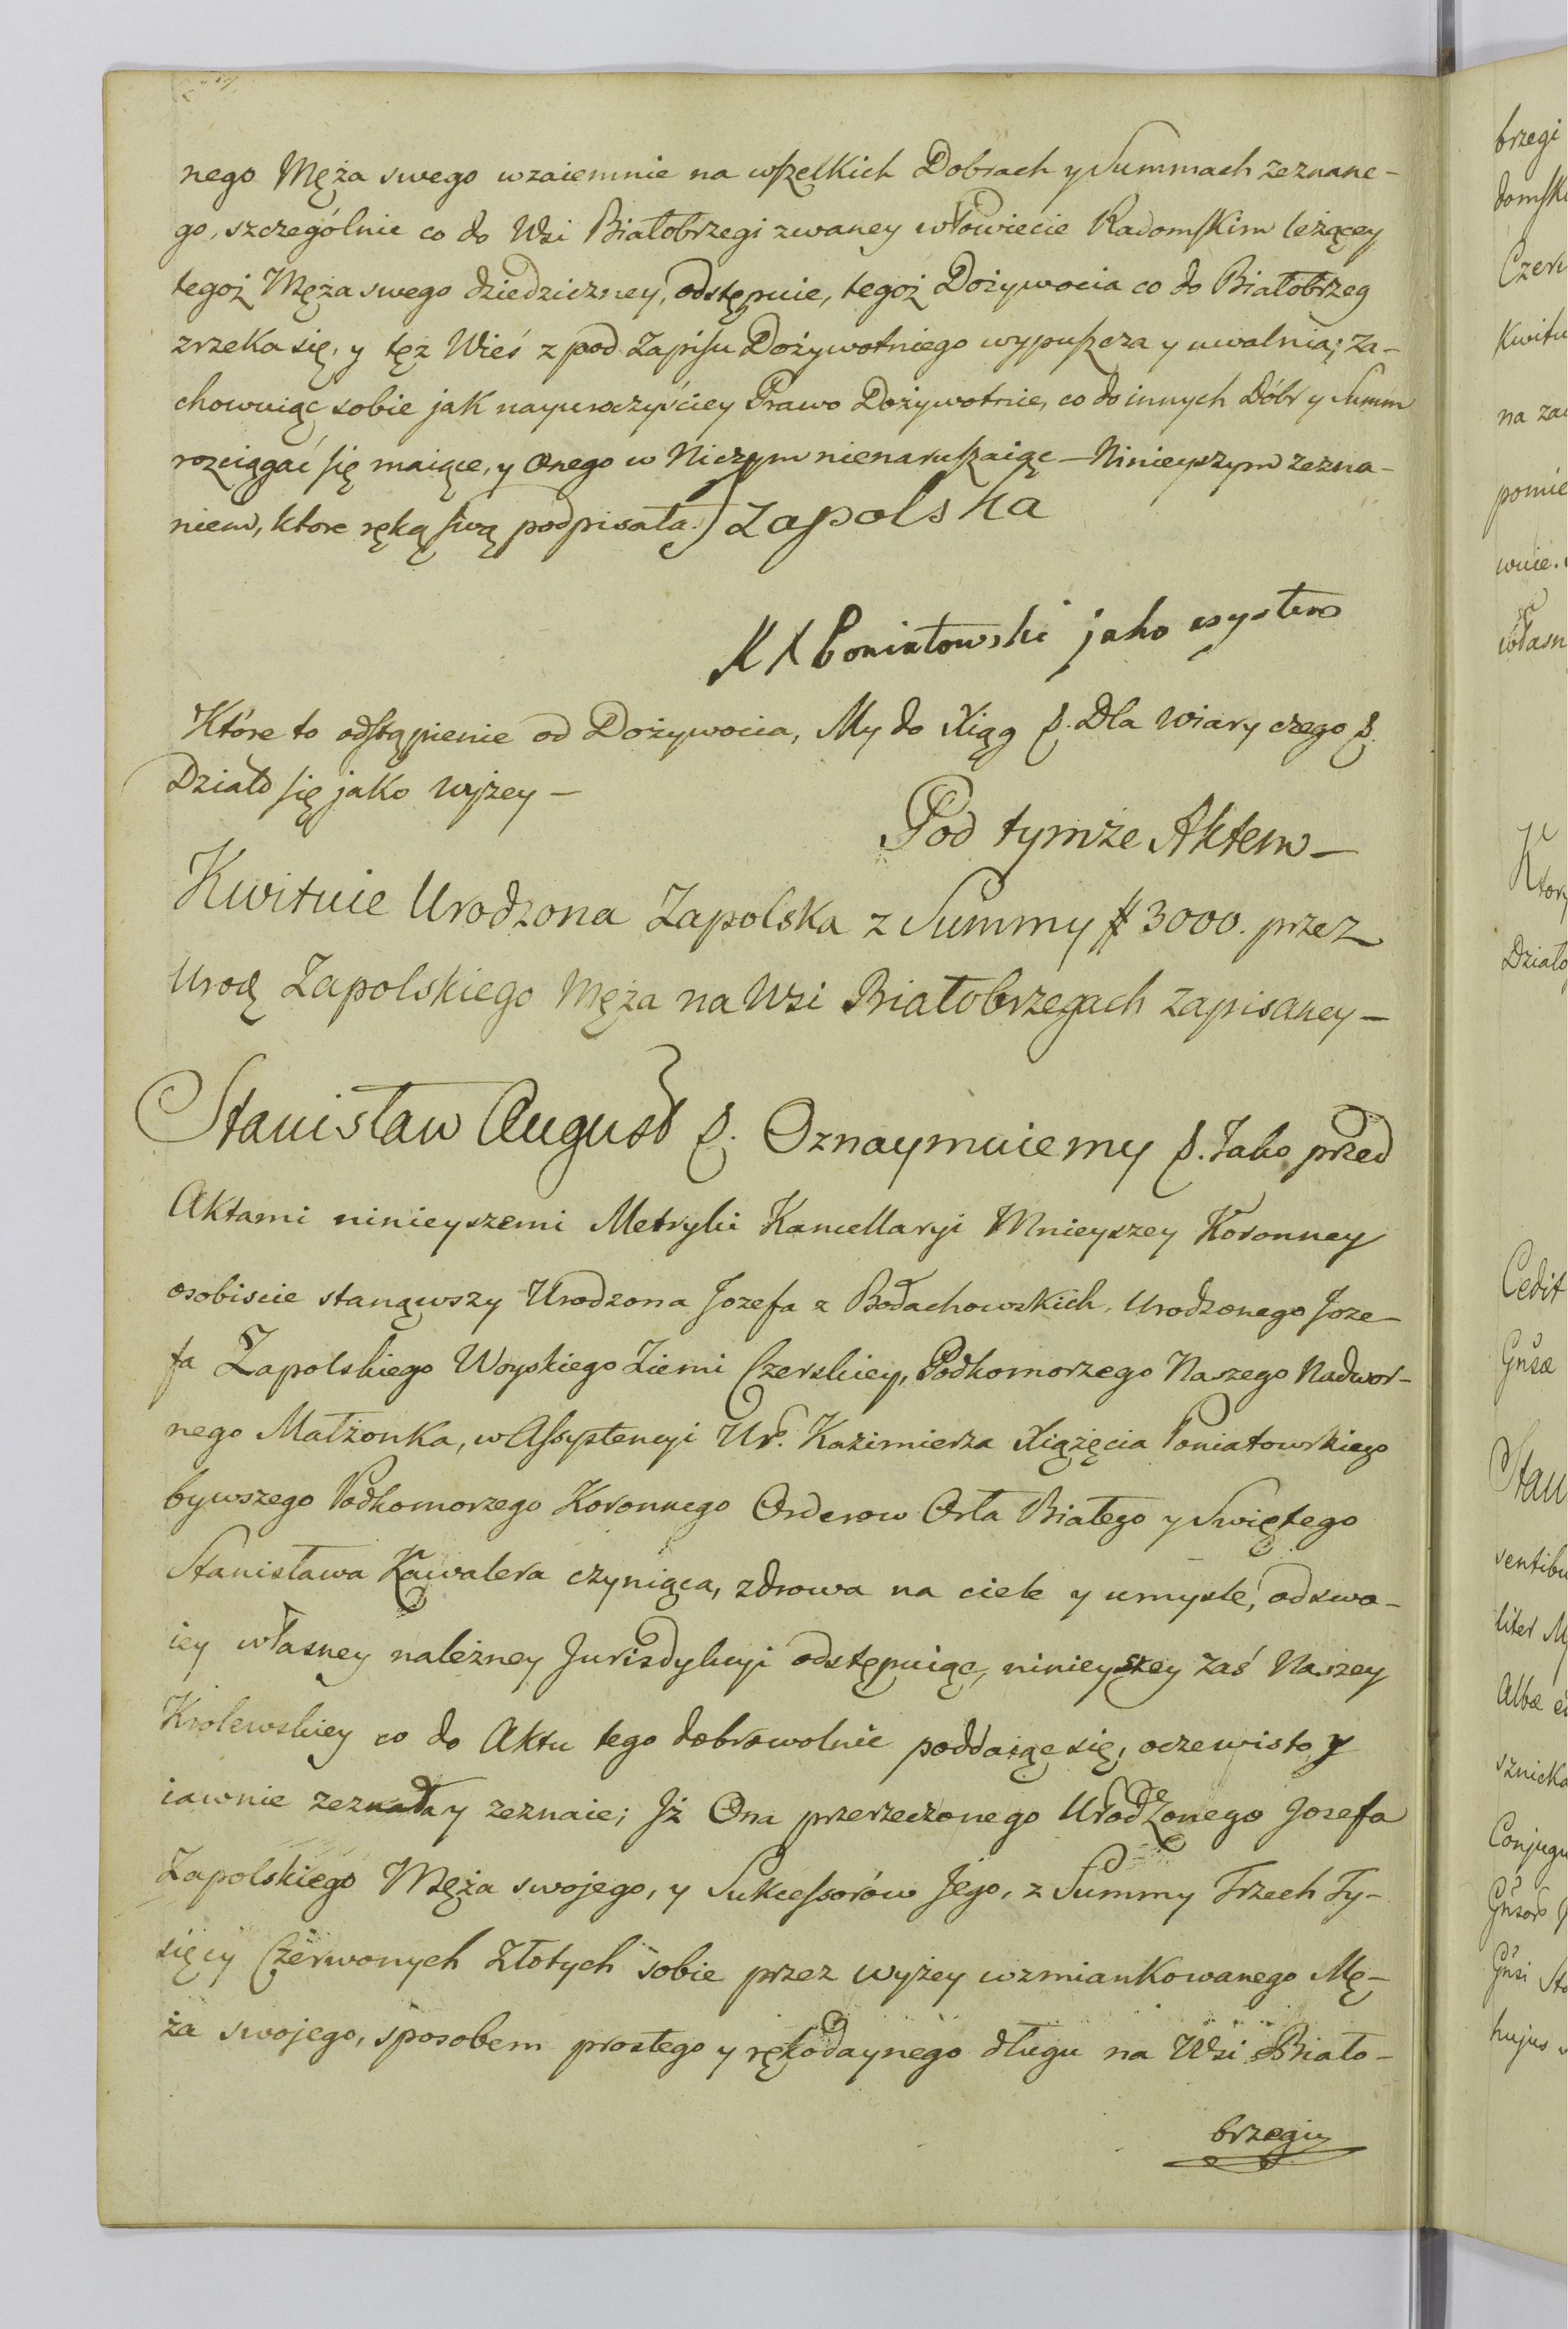 nego Męża swego wzaiemnie na wszelkich Dobrach y Summach zeznane-
go, szczególnie co do Wsi Białobrzegi zwaney w Powiecie Radomskim leżącey
tegoż Męża swego dziedziczney, odstępuie, tegoż Dożywocia co do Białobrzeg
zrzeka się, y tęż Wieś z pod Zapisu Dożywotniego wypuszcza y uwalnia; za-
chowuiąc sobie jak nayuroczyściey Prawo Dożywotnie, co do innych Dóbr y Summ
rozciągać się maiące, y onego w Niczym nienaruszaiąc — Ninieyszym zezna-
niem, ktore ręką swą podpisała.) Zapolska
K X Poniatowski jako asystens
Które to odstąpienie od Dożywocia, My do Xiąg &. Dla Wiary czego &.
Działo się jako wyżey —
Pod tymże Aktem —
Kwituie Urodzona Zapolska z Summy # 3000. przez
Urodz Zapolskiego Męża na Wsi Białobrzegach zapisaney —
Stanisław August &. Oznaymuiemy &. Jako przed
Aktami ninieyszemi Metryki Kancellaryi Mnieyszey Koronney
osobiscie stanąwszy Urodzona Jozefa z Bołachowskich, Urodzonego Joze-
fa Zapolskiego Woyskiego Ziemi Czerskiey, Podkomorzego Naszego Nadwor-
nego Małżonka, w Assystencyi Ur. Kazimierza Xiążęcia Poniatowskiego
bywszego Podkomorzego Koronnego Orderow Orła Białego y Swiętego
Stanisława Kawalera czyniąca, zdrowa na ciele y umysle, od swo-
iey własney należney Jurisdykcyi odstępuiąc, ninieyszey zaś Naszey
Krolewskiey co do Aktu tego dobrowolnie poddaiąc się, oczewisto y
iawnie zeznała y zeznaie; Jż Ona przerzeczonego Urodzonego Jozefa
Zapolskiego Męża swojego, y Sukcessorów Jego, z Summy Trzech Ty-
sięcy Czerwonych Złotych sobie przez wyżey wzmiankowanego Mę-
ża swojego, sposobem prostego y rękodaynego długu na Wsi Biało-
brzegi
brzegi
Czer
Kwitu
na za
pomie
wnie.
własn
Ktory
Działo
Cedit
Gnsæ
Stan
sentibu
liter
Albæ
sznicka
Conjugu
Gnsi
hujus